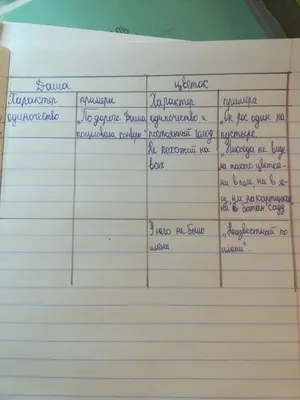 Даша
цветок
Характер
примеры
Характер
примера
одиночество
„По дороге Даша
поцеловала конверт"
одиночество и
постоянный голод
Не похожий на
всех
„Он рос один на
пустыре.
„Никогда не виде
ла такого цветка-
ни в поле, ни в ле-
су, ни на картинке
ни в ботан. саду
У него не было
имени
„Неизвестный по
имени".